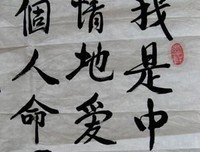 我是中
情地愛
個人命